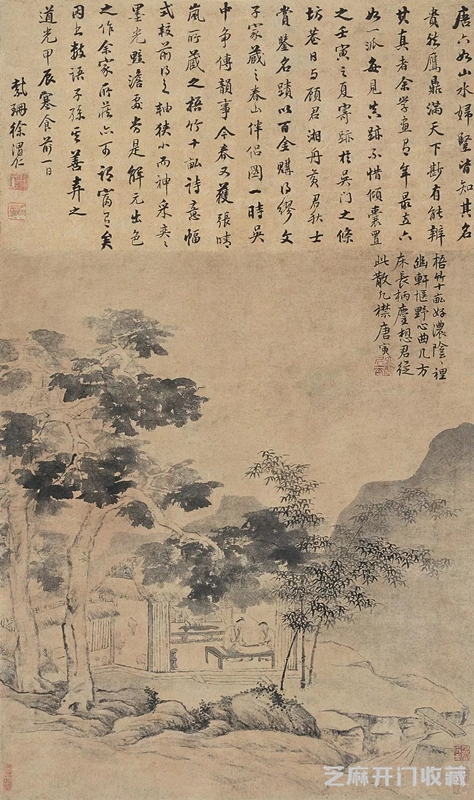 唐六如山水婦豎皆知其名
然鷹鼎滿天下尠有能辨
其真者余学畫有年最六
如一派每見真跡不惜傾囊置
之壬寅之夏寄跡於吳門之條
坊巷日与顧君湘舟黃君秋士
賞鑒名蹟以百金購得繆文
子家藏之春山伴侶圖一時吳
中争傳韻事今春又獲張晴
嵐所藏之梧竹十畝詩意幅
式較前得之軸狹小而神采奕〻
墨光黯澹處是解元出色
之作余家所藏亦可謂富有矣
因上數語子孫其善弆之
道光甲辰寒食前一日
紫珊徐渭仁
梧竹十畝好濃陰〻裡
幽軒愜野心曲几方
床長柄麈想君從
此散凡襟唐寅
芝麻开门收藏